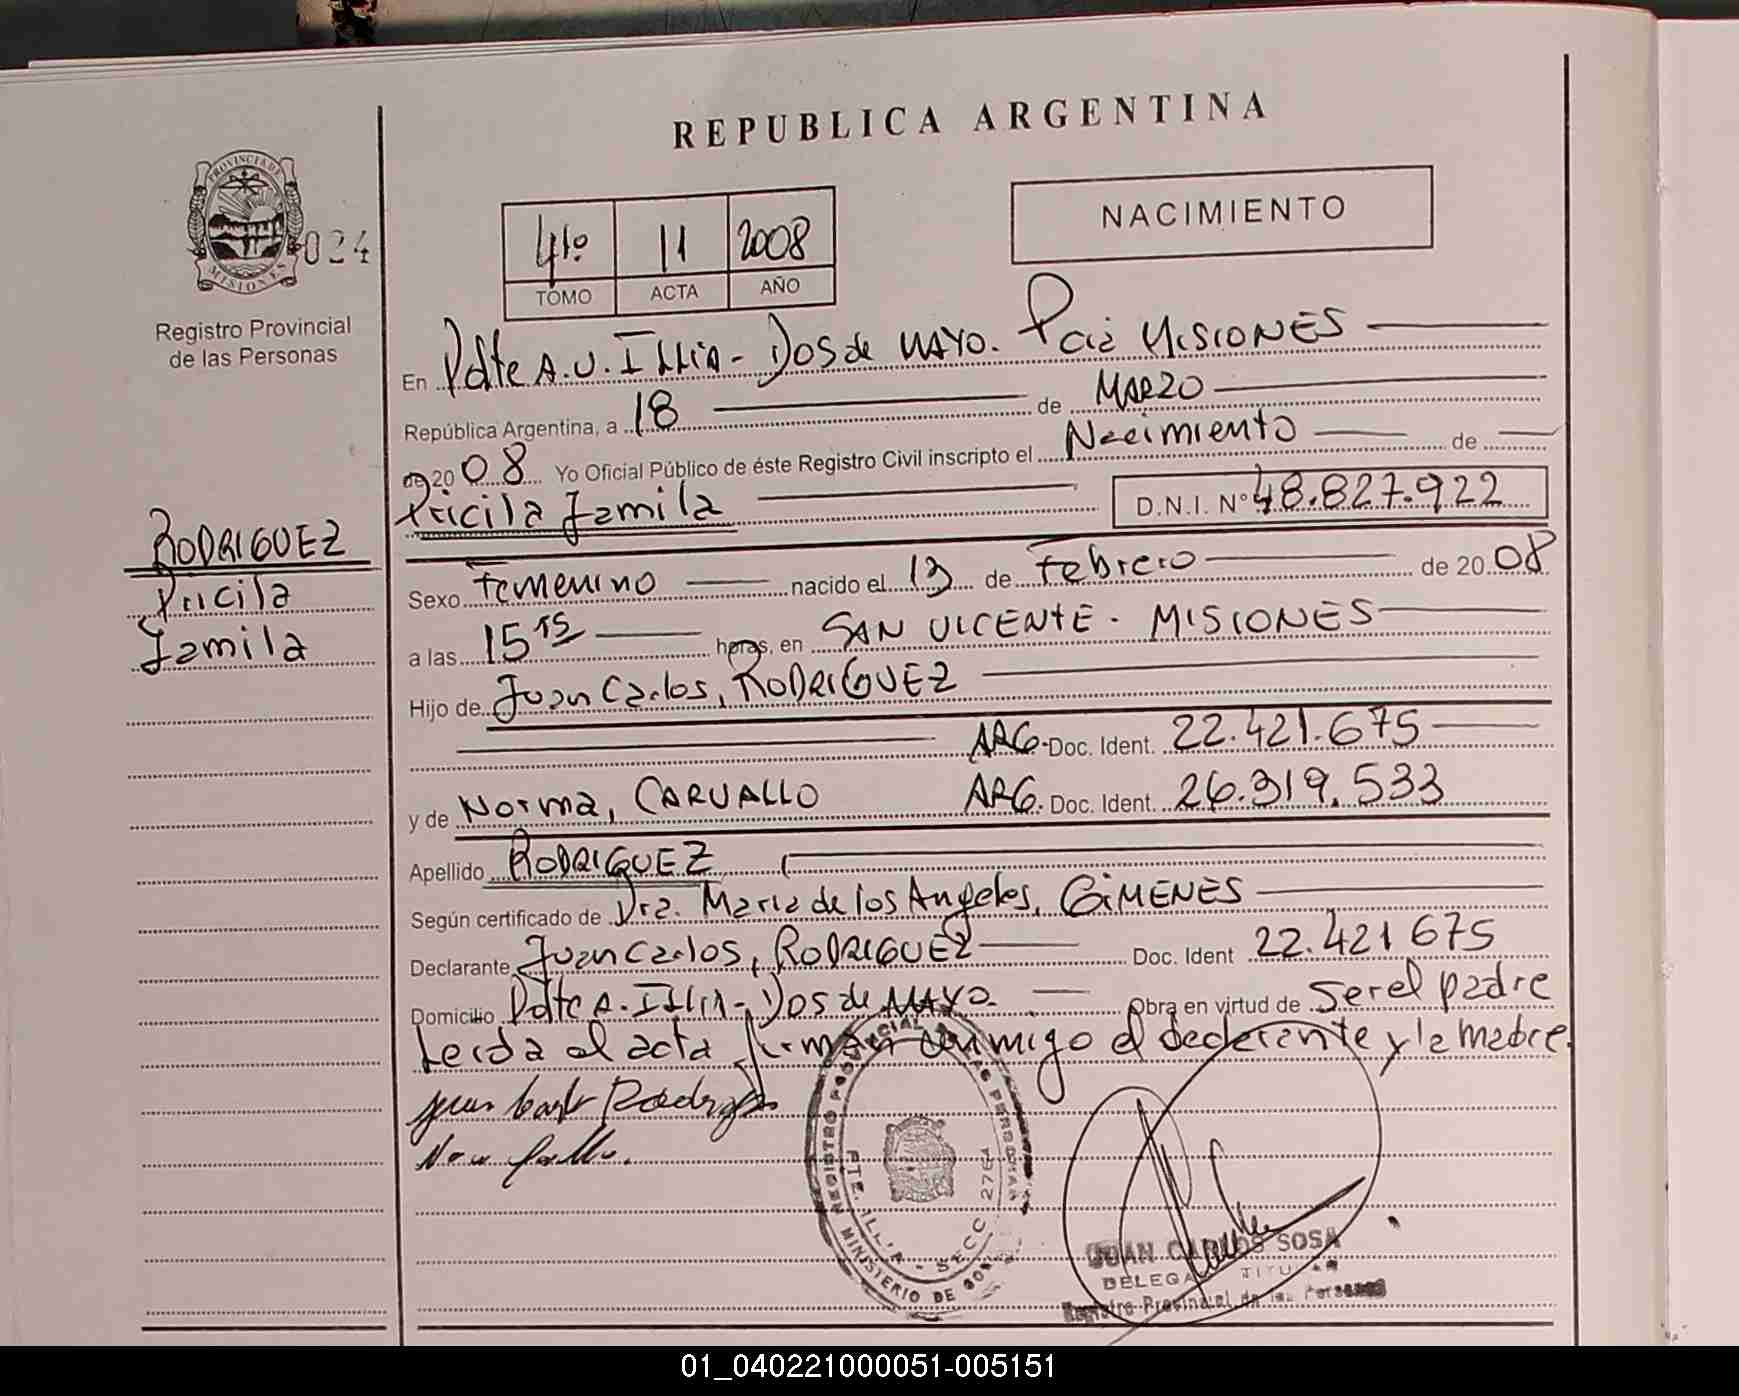 REPUBLICA ARGENTINA
NACIMIENTO
PROVINCIA DE
MISIONES
024
Registro Provincial
de las Personas
4to 11 2008
TOMO ACTA AÑO
En Pdte A.U. ILLIA - DOS de MAYO. Pcia MISIONES
República Argentina, a 18 de MARZO
de 20 08 Yo Oficial Público de éste Registro Civil inscripto el Nacimiento de
Pricila Jamila D.N.I. Nº 48.827.922
RODRIGUEZ
Pricila
Jamila
Sexo Femenino nacido el 13 de Febrero de 20 08
a las 15 15 horas, en SAN VICENTE - MISIONES
Hijo de Juan Carlos, RODRIGUEZ
ARG. Doc. Ident. 22.421.675
y de Norma, CARVALLO ARG. Doc. Ident. 26.319.533
Apellido RODRIGUEZ
Según certificado de Dra. Maria de los Angeles, GIMENES
Declarante Juan Carlos, RODRIGUEZ Doc. Ident 22.421 675
Domicilio Pdte A. Illia - Dos de MAYO. Obra en virtud de Ser el padre
Leida el acta firman conmigo el declarante y la madre.
Juan Carlos Rodrigez
REGISTRO PROVINCIAL DE LAS PERSONAS
PTE. ILLIA - SECC 27EA
MINISTERIO DE GOB
JUAN CARLOS SOSA
DELEGADO TITULAR
Registro Provincial de las Personas
01_040221000051-005151